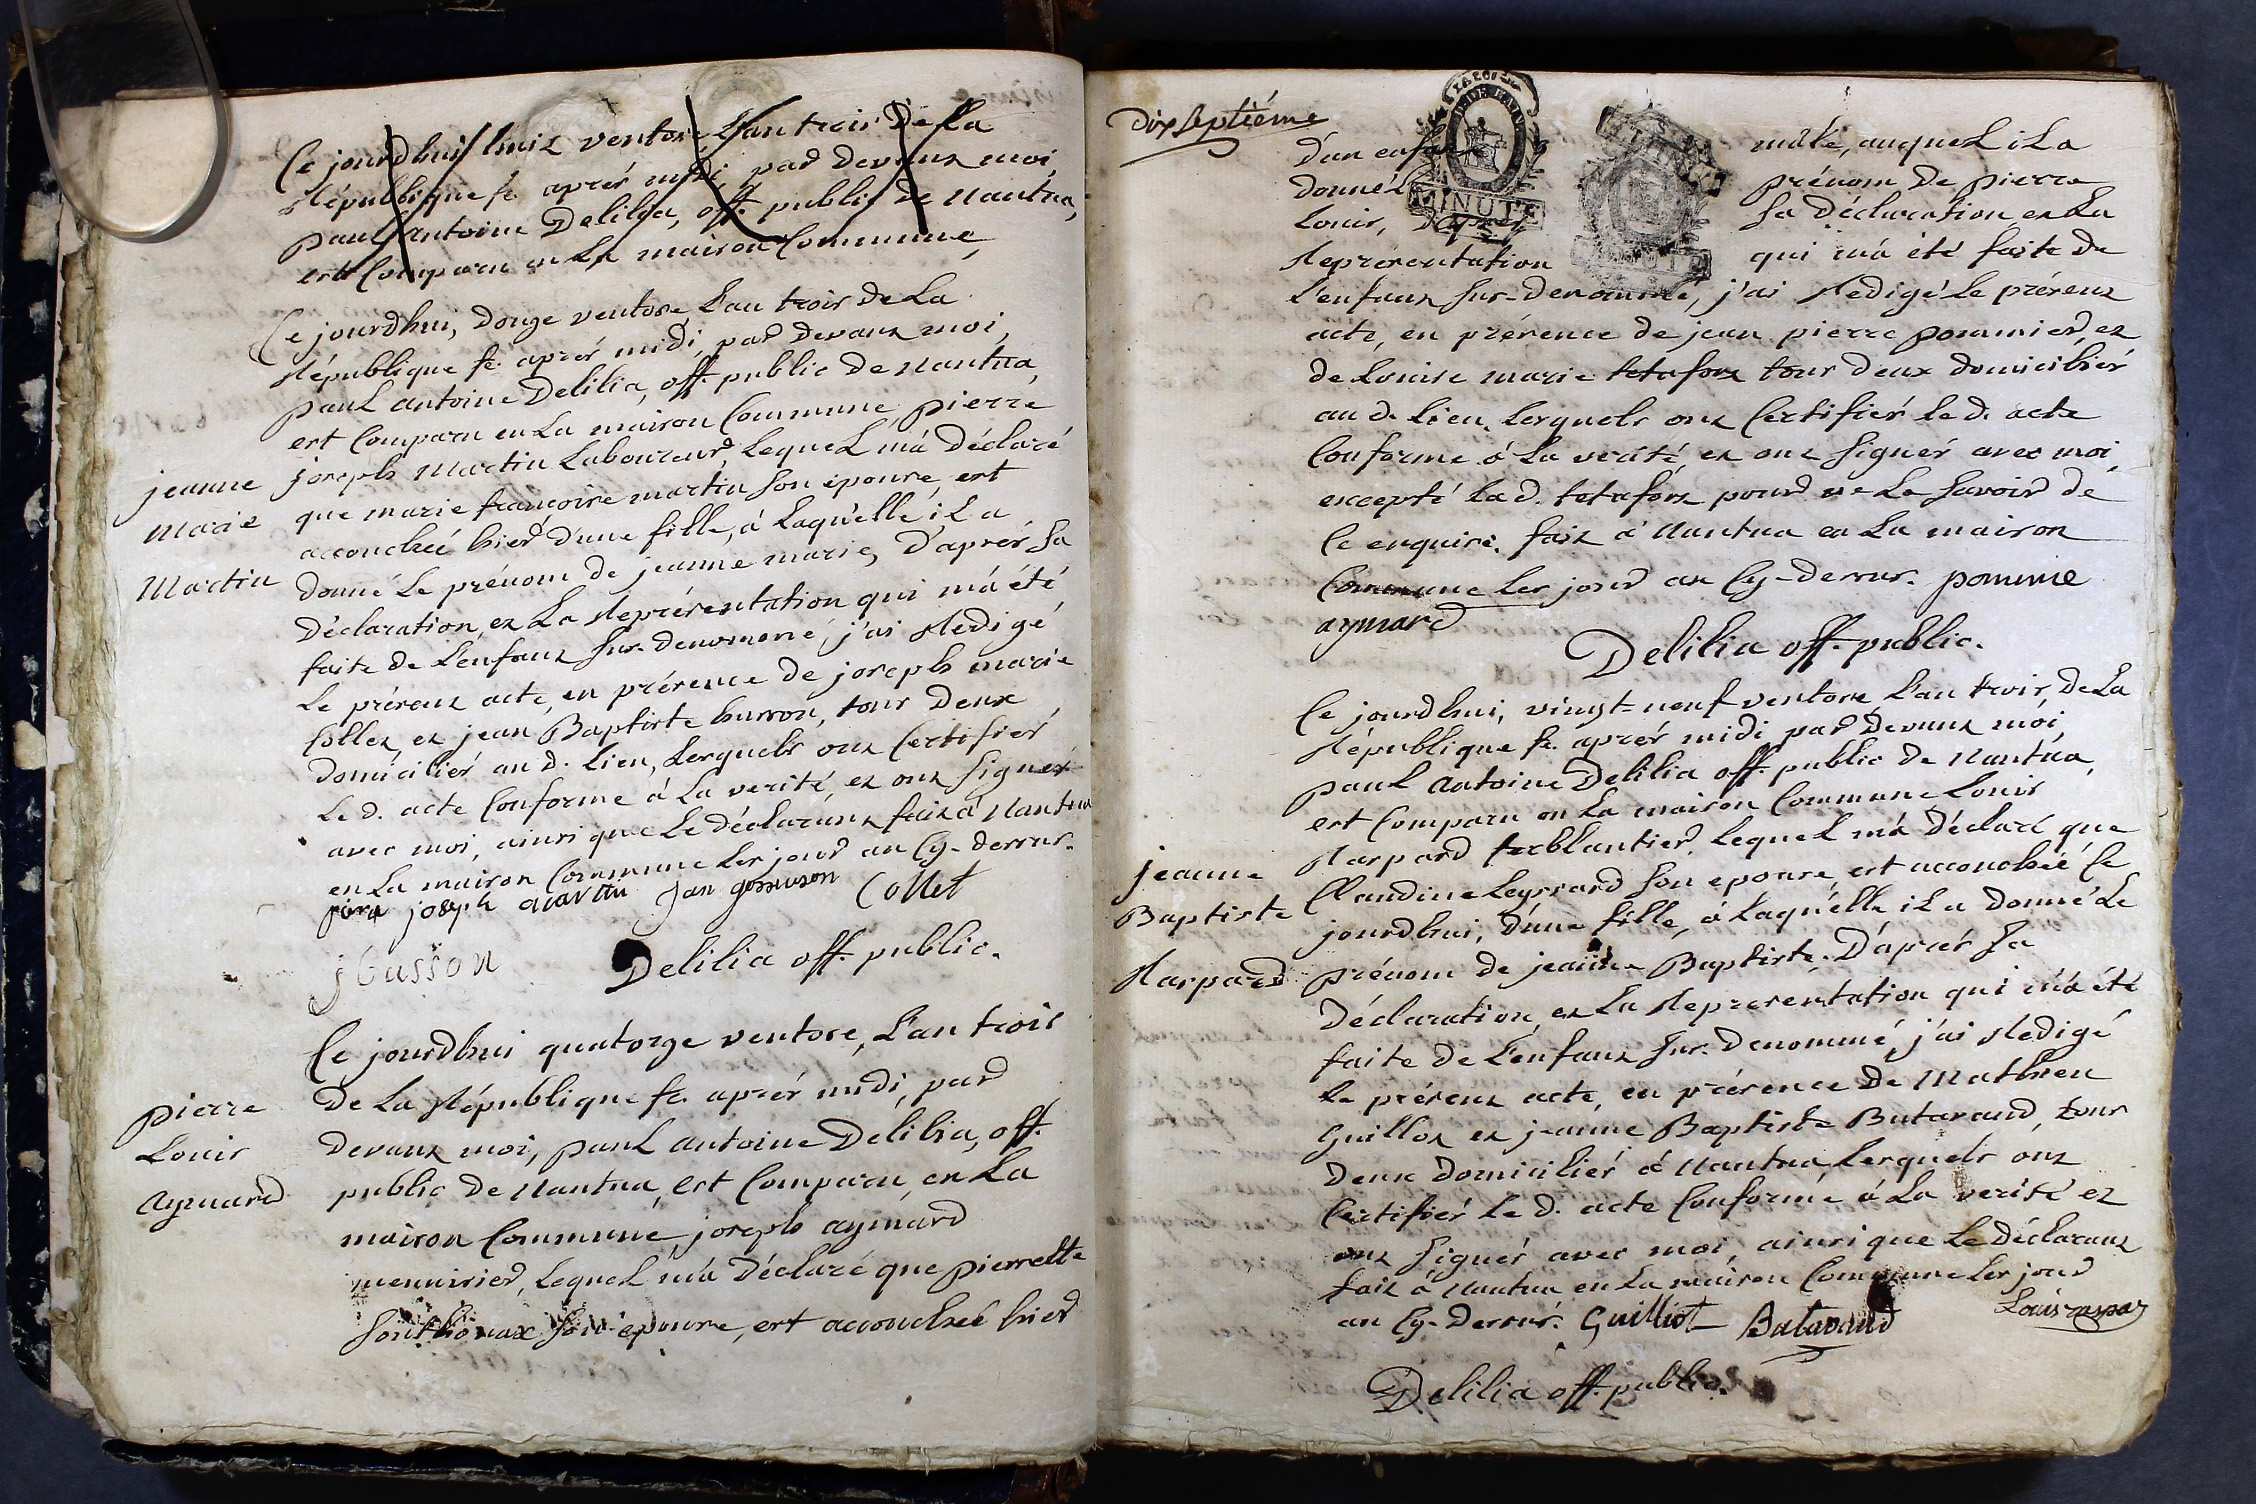 Ce jourd'hui huit ventose, L'an trois de La
République fe. aprés midi, par devant moi,
paul antoine Delilia, off. public de Nantua,
est Comparu en La maison Commune,
Ce jourd'hui, douze ventose, L'an trois de La
République fe. aprés midi, par devant moi,
paul antoine Delilia, off. public de Nantua,
est Comparu en La maison Commune pierre
joseph Martin Laboureur, Lequel m'a Déclaré
que marie francoise martin son epouse, est
accouchée hier d'une fille, à Laquelle iL a
donné Le prénom de jeanne marie, D'aprés sa
Déclaration, et La Représentation qui m'a été
faite de L'enfant sus-dénommé, j'ai Redigé
Le présent acte, en présence de joseph marie
Collet, et jean Baptiste husson, tous Deux
domiciliés au d. Lieu, Lesquels ont Certifiés
Le d. acte Conforme à La verité, et ont signés
avec moi, ainsi que Le Déclarant, fait à Nantua
en La maison Commune Les jour an Cy-dessus.
jeanne
Marie
Martin
joseph martin Collet
jbusson Delilia off. public.
Ce jourd'hui quatorze ventose, L'an trois
De La République fe. aprés midi, par
devant moi, paul antoine Delilia, off.
public de Nantua, est Comparu, en La
maison Commune, joseph aymard
menuisier, Lequel m'a Déclaré que pierrette
Sonthonax son épouse, est accouchée hier
pierre
Louis
aymard
Dix septiéme
D'un enfant mâle, auquel iL a
donné Le prénom de pierre
Louis, D'aprés sa déclaration et La
Représentation qui m'a été faite de
L'enfant sus-denommé, j'ai Redigé Le présent
acte, en présence de jean pierre pommier, et
de Louise marie tetafort tous deux domiciliés
au d. Lieu, Lesquels ont Certifiés Le d. acte
Conforme à La verité, et ont signés avec moi,
excepté lad. tetafort pour ne Le savoir de
Ce enquise. fait à Nantua en La maison
Commune Les jour an Cy-dessus. pommie
aymard
Delilia off. public.
Ce jourd'hui, vingt-neuf ventose, L'an trois, de La
République fe. aprés midi, par Devant moi,
paul antoine Delilia off. public de Nantua,
est Comparu en La maison Commune Louis
Raspard ferblantier, Lequel m'a Déclaré que
Claudine Leyssard son epouse, est accouchée Ce
jourd'hui, d'une fille, à Laquelle iL a donné Le
prénom de jeanne Baptiste. D'aprés sa
Déclaration, et La Représentation qui m'a été
faite de L'enfant sus-Denommé, j'ai Redigé
Le présent acte, en présence de Mathieu
Guillot et jeanne Baptiste Butavand, tous
Deux Domiciliés à Nantua, Lesquels ont
Certifiés Le d. acte Conforme à La verité et
ont signés avec moi, ainsi que Le déclarant
fait à Nantua en La maison Commune Les jour
an Cy-Dessus. Guilliot Batavand Louis raspar
jeanne
Baptiste
Raspard
Delilia off. public.
MINUTE